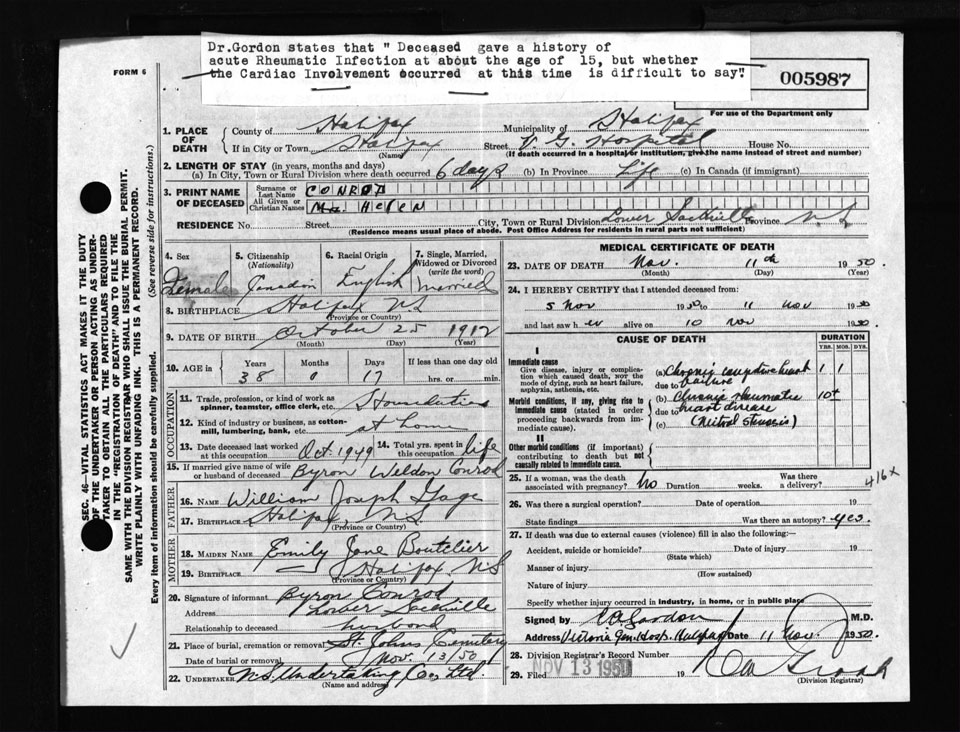 Dr.Gordon states that " Deceased gave a history of
acute Rheumatic Infection at about the age of 15, but whether
the Cardiac Involvement occurred at this time is difficult to say"
FORM 6
005987
For use of the Department only
SEC. 46—VITAL STATISTICS ACT MAKES IT THE DUTY
OF THE UNDERTAKER OR PERSON ACTING AS UNDER-
TAKER TO OBTAIN ALL THE PARTICULARS REQUIRED
IN THE "REGISTRATION OF DEATH" AND TO FILE THE
SAME WITH THE DIVISION REGISTRAR WHO SHALL ISSUE THE BURIAL PERMIT.
WRITE PLAINLY WITH UNFADING INK. THIS IS A PERMANENT RECORD.
Every item of information should be carefully supplied. (See reverse side for instructions.)
1. PLACE OF DEATH
County of Halifax Municipality of Halifax
If in City or Town Halifax Street V. G. Hospital House No.
(Name) (If death occurred in a hospital or institution, give the name instead of street and number)
2. LENGTH OF STAY (in years, months and days)
(a) In City, Town or Rural Division where death occurred 6 days (b) In Province Life (c) In Canada (if immigrant)
3. PRINT NAME OF DECEASED
Surname or Last Name CONROD
All Given or Christian Names Mrs. HELEN
RESIDENCE No. Street City, Town or Rural Division Lower Sackville Province N S
(Residence means usual place of abode. Post Office Address for residents in rural parts not sufficient)
4. Sex 5. Citizenship (Nationality) 6. Racial Origin 7. Single, Married, Widowed or Divorced (write the word)
Female Canadian English married
8. BIRTHPLACE Halifax NS
(Province or Country)
9. DATE OF BIRTH October 25 1912
(Month) (Day) (Year)
10. AGE in Years Months Days If less than one day old
38 0 17 hrs. or min.
OCCUPATION
11. Trade, profession, or kind of work as spinner, teamster, office clerk, etc. Home duties
12. Kind of industry or business, as cotton-mill, lumbering, bank, etc. at home
13. Date deceased last worked at this occupation Oct. 1949 14. Total yrs. spent in this occupation life
15. If married give name of wife or husband of deceased Byron Weldon Conrod
FATHER
16. NAME William Joseph Gage
17. BIRTHPLACE Halifax, N.S.
(Province or Country)
MOTHER
18. MAIDEN NAME Emily Jane Boutelier
19. BIRTHPLACE Halifax NS
(Province or Country)
20. Signature of informant Byron Conrod
Address Lower Sackville
Relationship to deceased husband
21. Place of burial, cremation or removal St. Johns Cemetery
Date of burial or removal Nov. 13/50
22. UNDERTAKER N.S. Undertaking Co., Ltd.
(Name and address)
MEDICAL CERTIFICATE OF DEATH
23. DATE OF DEATH Nov. 11th 1950
(Month) (Day) (Year)
24. I HEREBY CERTIFY that I attended deceased from:
5 Nov 1950 to 11 Nov 1950
and last saw her alive on 10 Nov 1950.
CAUSE OF DEATH DURATION
YRS. MOS. DYS.
I
Immediate cause
Give disease, injury or complication which caused death, not the mode of dying, such as heart failure, asphyxia, asthenia, etc.
(a) Chronic congestive heart failure 1 1
due to
Morbid conditions, if any, giving rise to immediate cause (stated in order proceeding backwards from immediate cause).
(b) Chronic rheumatic heart disease 10+
due to
(c) (Mitral stenosis)
II
Other morbid conditions (if important) contributing to death but not causally related to immediate cause.
25. If a woman, was the death associated with pregnancy? No Duration weeks. Was there a delivery?
416x
26. Was there a surgical operation? Date of operation 19
State findings Was there an autopsy? yes.
27. If death was due to external causes (violence) fill in also the following:—
Accident, suicide or homicide? Date of injury 19
(State which)
Manner of injury
(How sustained)
Nature of injury
Specify whether injury occurred in industry, in home, or in public place
Signed by Gordon M.D.
Address Victoria Gen. Hosp. Halifax Date 11 Nov. 1950.
28. Division Registrar's Record Number
29. Filed NOV 13 1950 19
(Division Registrar)